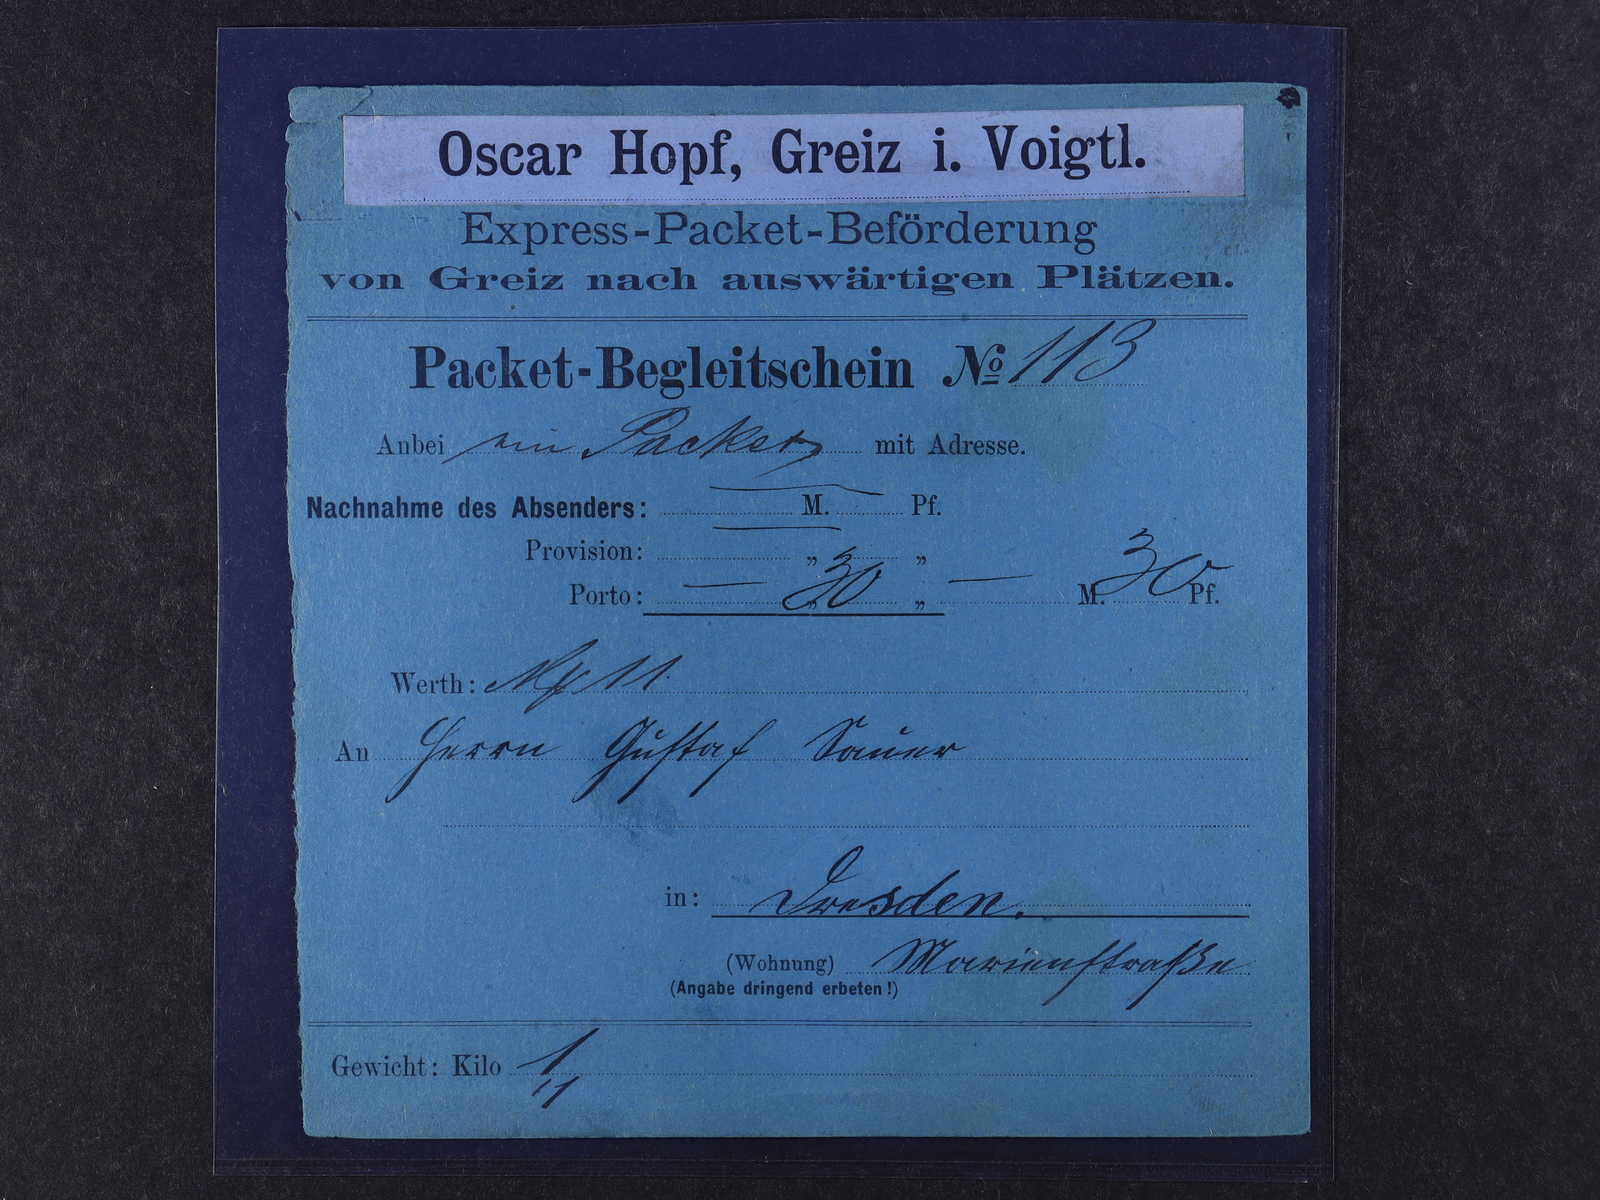 Oscar Hopf, Greiz i. Voigtl.
Express-Packet-Beförderung
von Greiz nach auswärtigen Plätzen.
Packet-Begleitschein No 113
Anbei ein Packet mit Adresse.
Nachnahme des Absenders: M. Pf.
Provision: „ „
Porto: — „ 30 „ — M. 30 Pf.
Werth: 11.
An Herrn Gustaf Sauer
in: Dresden.
(Wohnung) Marienstraße
(Angabe dringend erbeten!)
Gewicht: Kilo 1